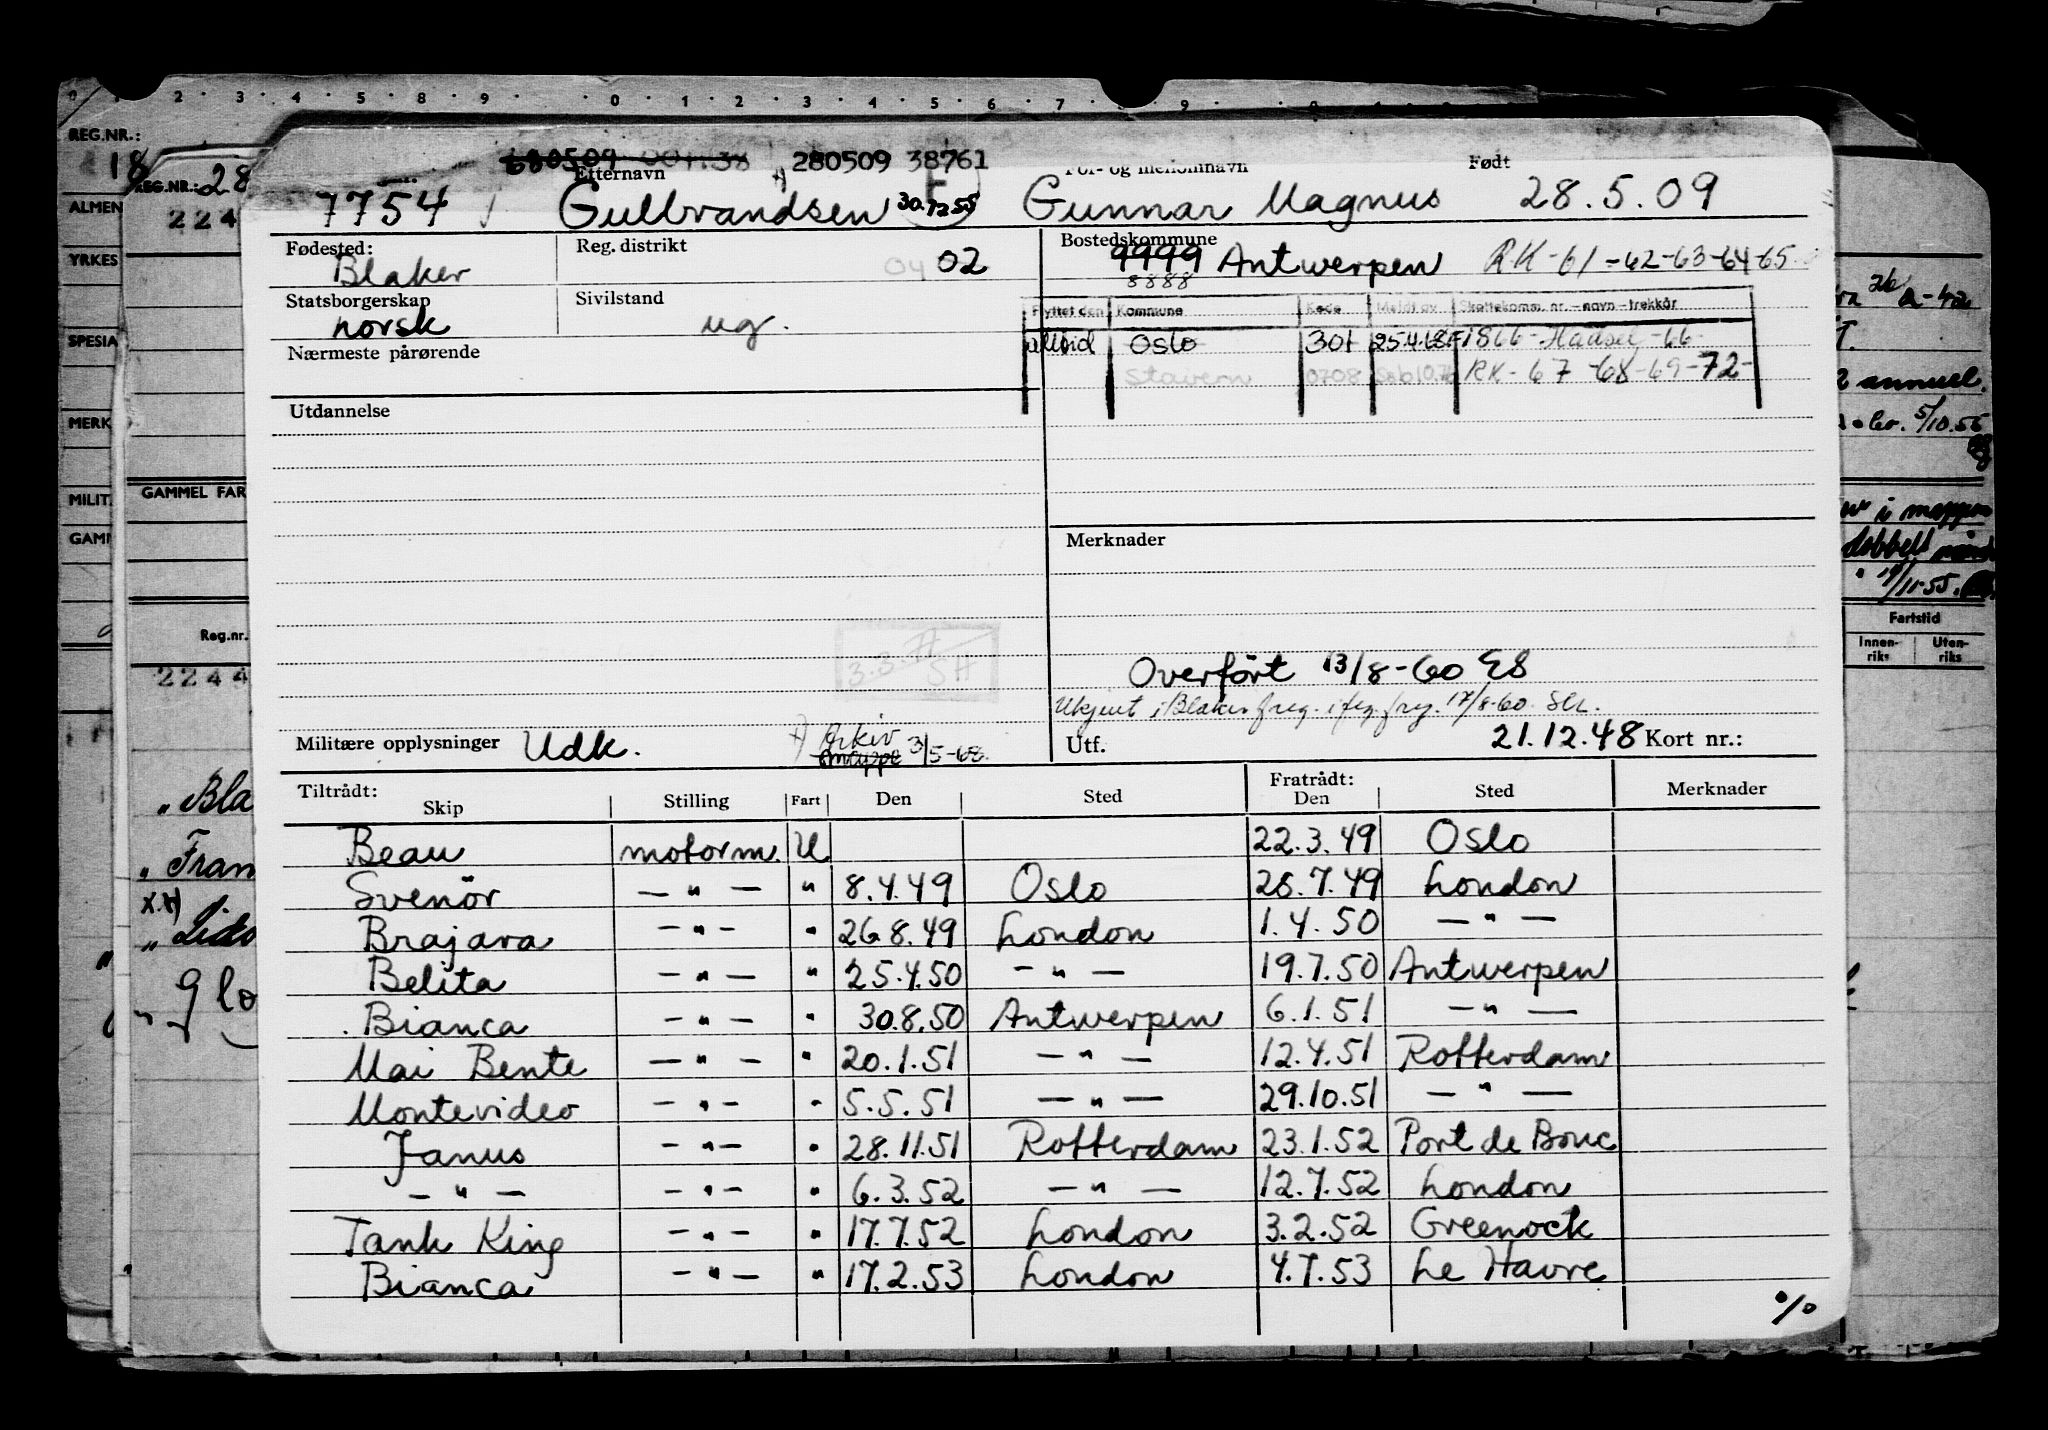 REG.NR.:
18
REG.NR.: 28
280509 38761
Etternavn For- og mellomnavn Født
7754 Gulbrandsen 30.12 55 Gunnar Magnus 28.5.09
ALMEN
224
Fødested: Reg. distrikt Bostedskommune
Blaker 02 9999 Antwerpen RK-61-62-63-64-65
8888
YRKES
Statsborgerskap Sivilstand
norsk ug.
Flyttet den Kommune Kode Meldt av Skattekomm. nr. - navn - trekkår
Oslo 301 25.4.68
Stavern 0708 RK-67-68-69-72-
SPESIA
Nærmeste pårørende
Utdannelse
MERK
annuel.
5/10.55
MILIT.
GAMMEL FAR
GAMM
i mappen
dobbelt
Merknader
Fartstid
Innenriks Utenriks
Reg.nr.
2244
Overført 13/8-60 ES
Ukjent i Blaker freg. 17/8-60
Militære opplysninger Udk. Arkiv 3/5-68 Utf. 21.12.48 Kort nr.:
Tiltrådt: Fratrådt:
Skip Stilling Fart Den Sted Den Sted Merknader
Beau motorm. U 22.3.49 Oslo
Svenör — " — " 8.4.49 Oslo 28.7.49 London
Brajara — " — " 26.8.49 London 1.4.50 — " —
Belita — " — " 25.4.50 — " — 19.7.50 Antwerpen
Bianca — " — " 30.8.50 Antwerpen 6.1.51 — " —
Mai Bente — " — " 20.1.51 — " — 12.4.51 Rotterdam
Montevideo — " — " 5.5.51 — " — 29.10.51 — " —
Janus — " — " 28.11.51 Rotterdam 23.1.52 Port de Bouc
— " — — " — " 6.3.52 — " — 12.7.52 London
Tank King — " — " 17.7.52 London 3.2.52 Greenock
Bianca — " — " 17.2.53 London 4.7.53 Le Havre
%